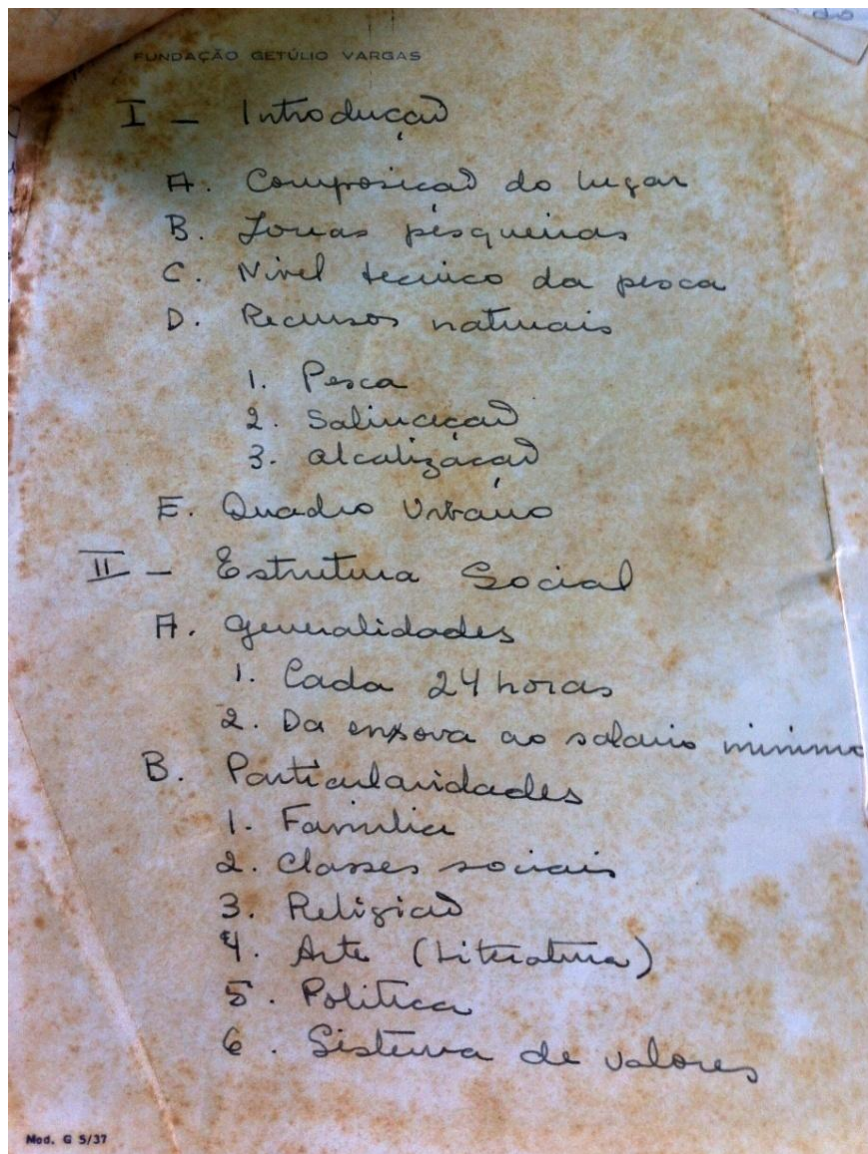 FUNDAÇÃO GETÚLIO VARGAS
I - Introdução
A. Composição do lugar
B. Zonas pesqueiras
C. Nivel tecnico da pesca
D. Recursos naturais
1. Pesca
2. Salinação
3. Alcalização
E. Quadro Urbano
II - Estrutura Social
A. Generalidades
1. Cada 24 horas
2. Da enxova ao salario minimo
B. Particularidades
1. Familia
2. Classes sociais
3. Religião
4. Arte (Literatura)
5. Politica
6. Sistema de valores
Mod. G 5/37